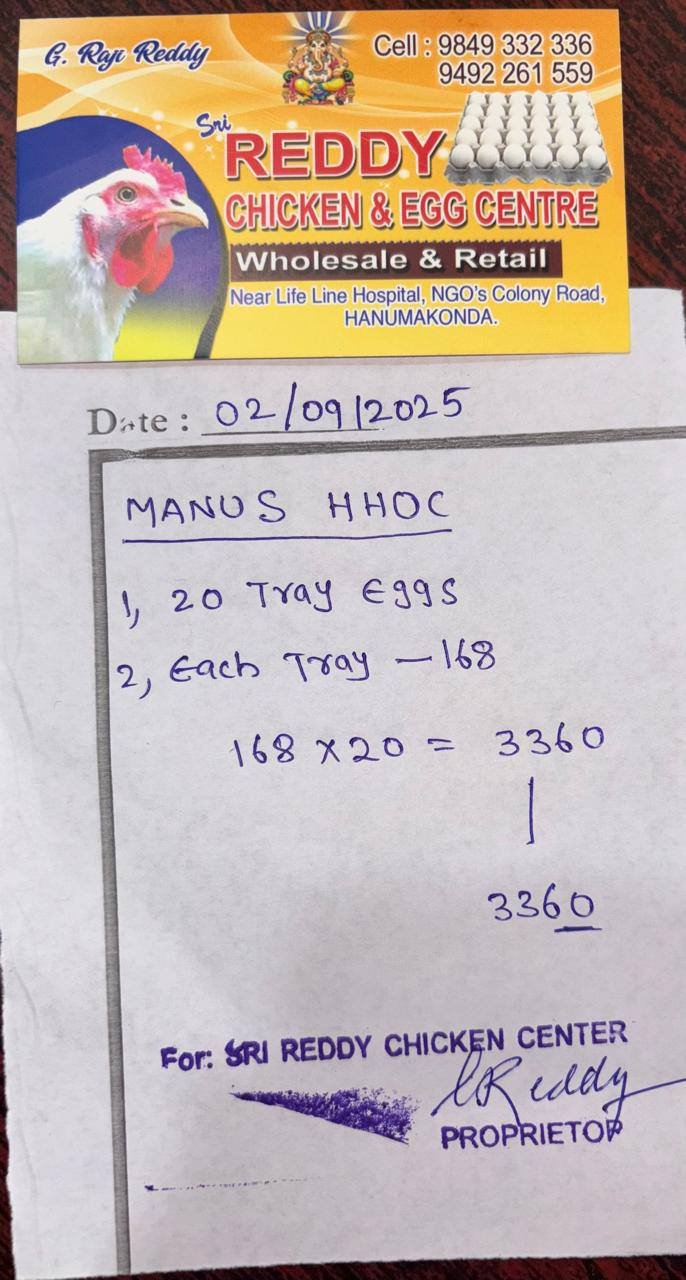 G. Raji Reddy
Cell : 9849 332 336
9492 261 559
Sri
REDDY
CHICKEN & EGG CENTRE
Wholesale & Retail
Near Life Line Hospital, NGO's Colony Road,
HANUMAKONDA.
Date : 02/09/2025
MANUS HHOC
1, 20 Tray Eggs
2, Each Tray - 168
168 x 20 = 3360
3360
For: SRI REDDY CHICKEN CENTER
GReddy
PROPRIETOR